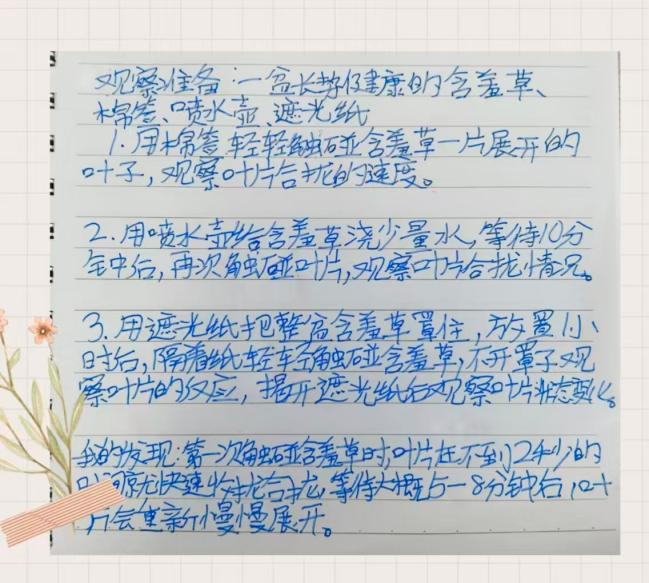 观察准备:一盆长势健康的含羞草、
棉签、喷水壶、遮光纸
1.用棉签轻轻触碰含羞草一片展开的
叶子,观察叶片合拢的速度。
2.用喷水壶给含羞草浇少量水,等待10分
钟后,再次触碰叶片,观察叶片合拢情况。
3.用遮光纸把整盆含羞草罩住,放置1小
时后,隔着纸轻轻触碰含羞草,不开罩子观
察叶片的反应,揭开遮光纸后观察叶片状态变化。
我的发现:第一次触碰含羞草时,叶片在不到2秒的
时间就快速收拢合拢,等待大概5-8分钟后,叶
片会重新慢慢展开。